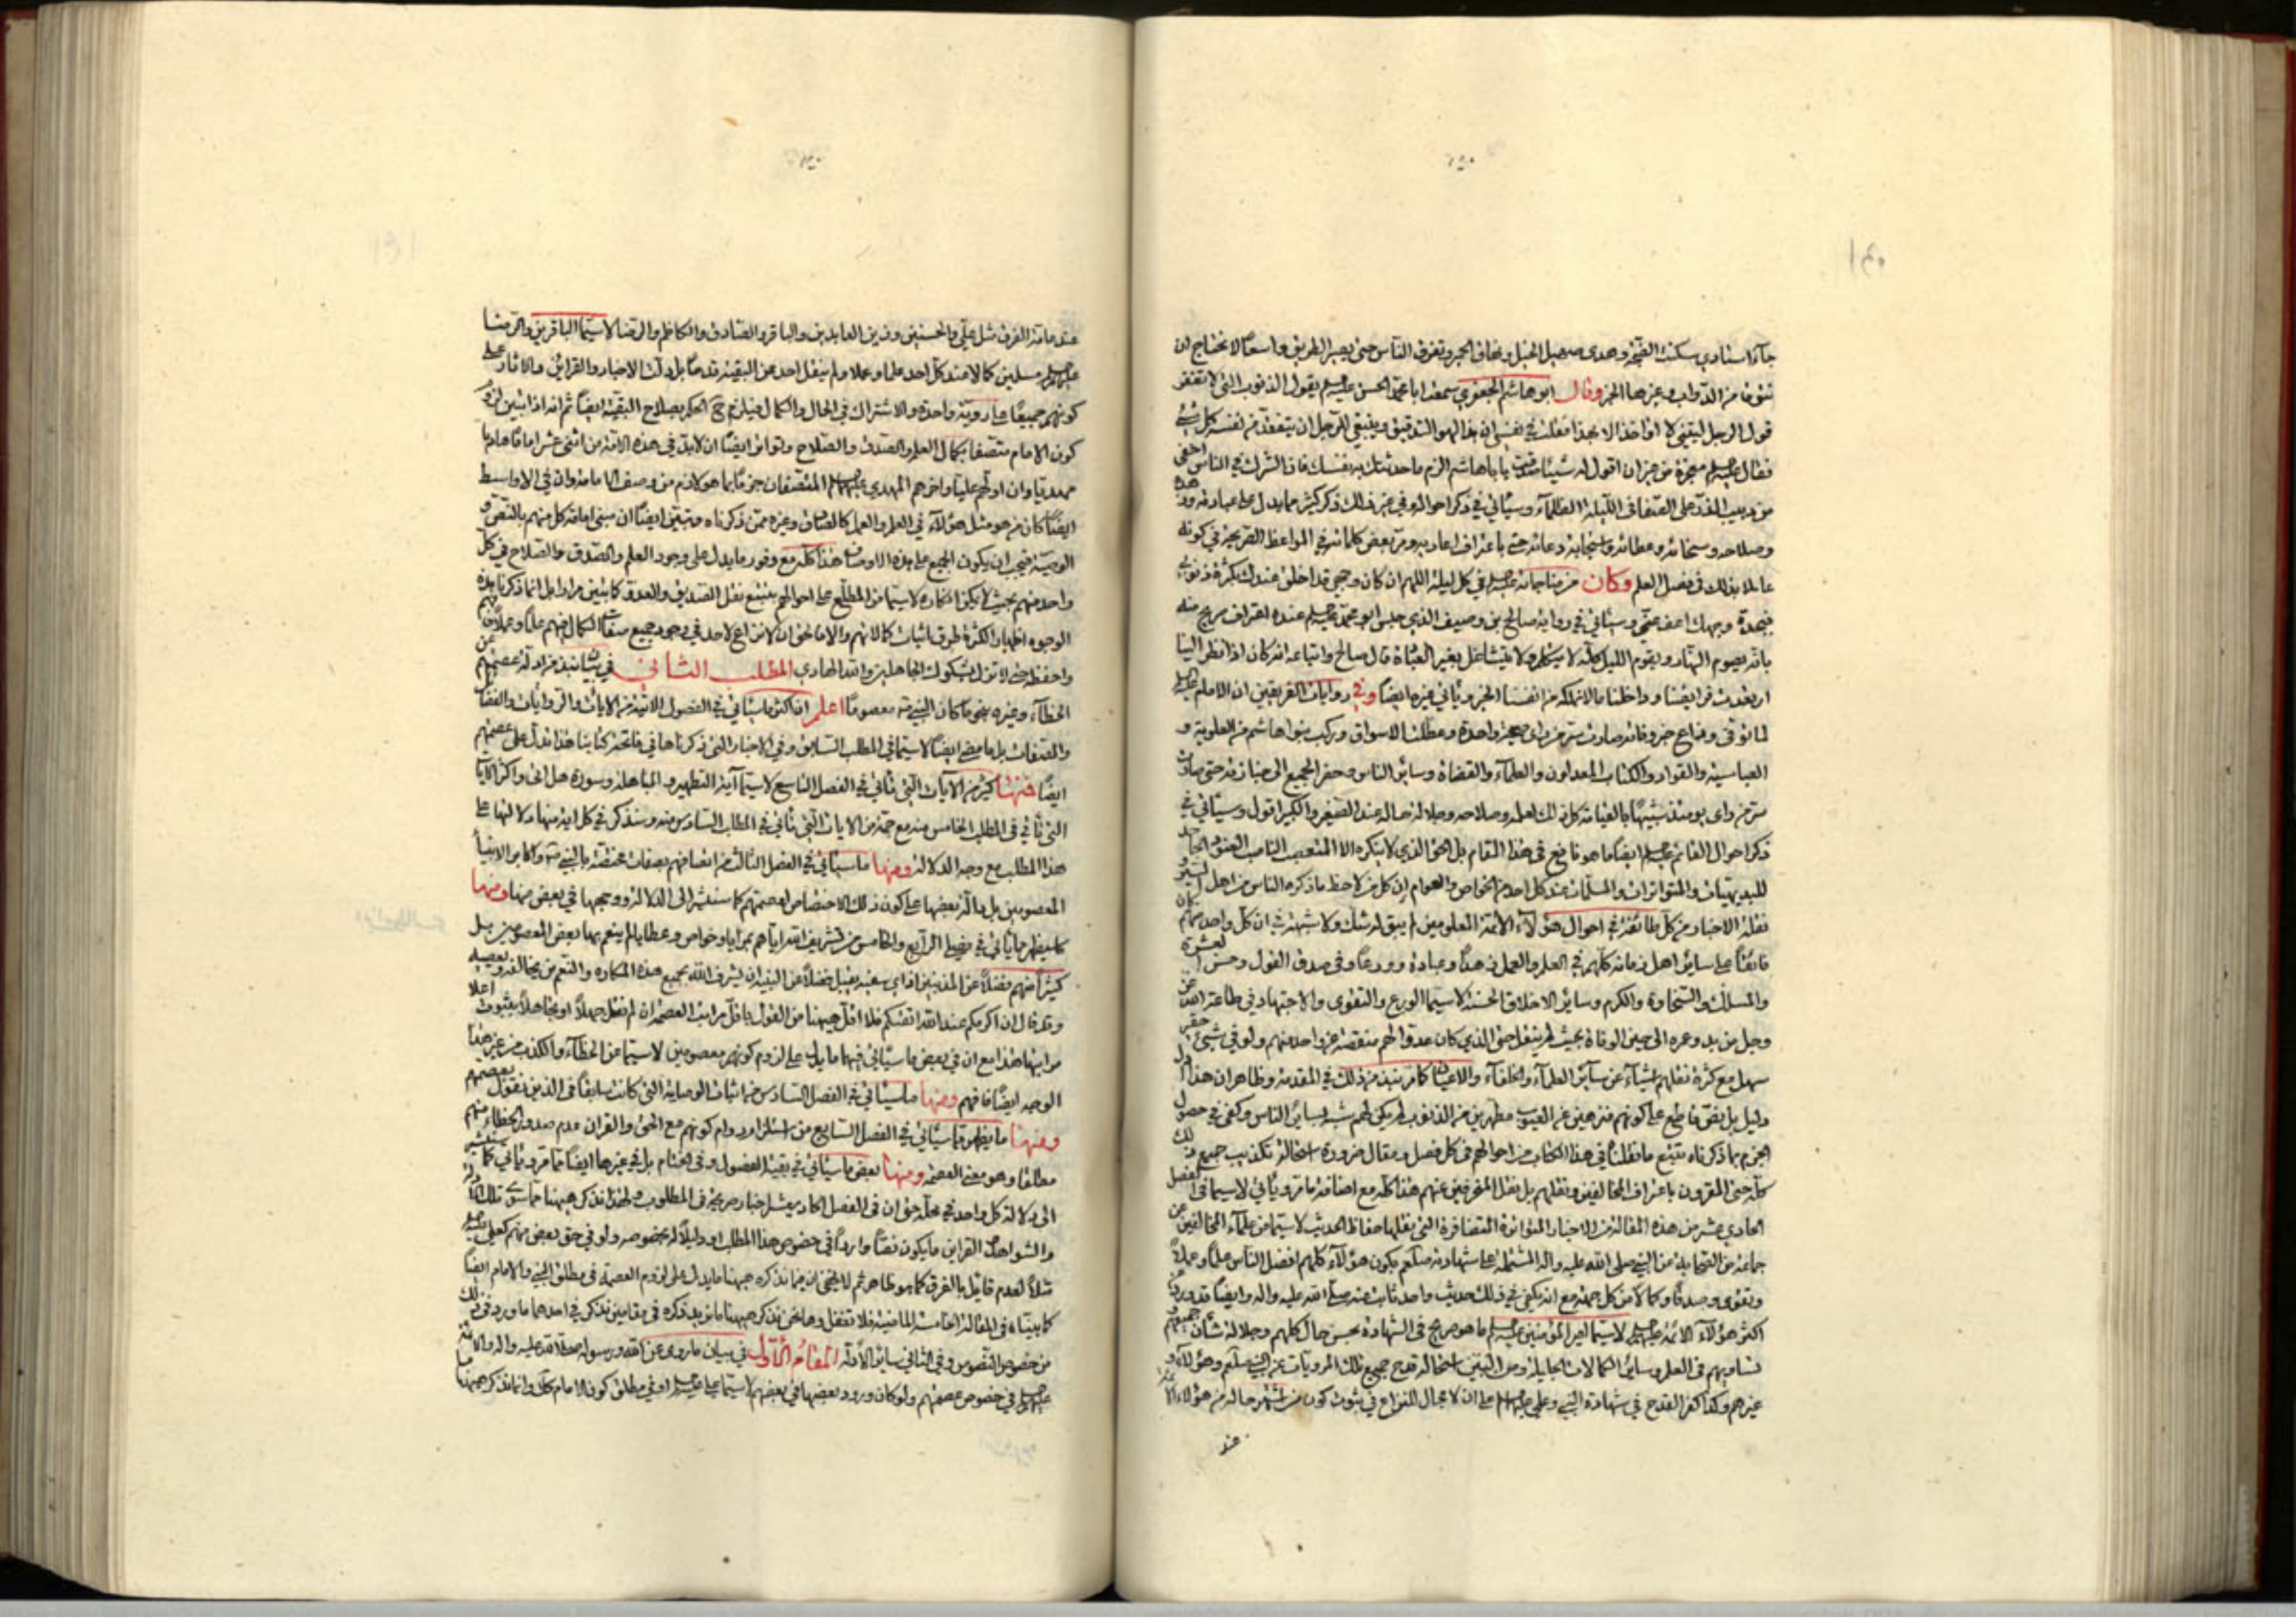 جاء استنادي سكنت الضجة وهدى صهيل الخيل ونهاق الحمير وتفرق الناس حتى يصير الطريق واسعا لا يحتاج ان
من الدواب وغيرها الخبر وقال ابو هاشم الجعفري سمعت ابا محمد الحسن عليه السلام يقول الذنوب التي لا تغفر
قول الرجل ليتني لا اواخذ الا بهذا فقلت في نفسي ان هذا لهو الدقيق وينبغي للرجل ان يتفقد من نفسه كل شئ
فقال عليه السلام معجزة من غير ان اقول له شيئا صدقت يا باهاشم الزم ما حدثتك به نفسك فان الشرك في الناس اخفى
من دبيب على الصفا في الليلة الظلماء وسيأتي في ذكر احواله وفي غير ذلك ذكر كثير مما يدل على عبادته
وصلاحه وسخائه وعطائه واستجابة دعائه حتى باعتراف اعاديه ومر بعض كلماته في المواعظ الصريحة في كونه
عاملا بذلك في فصل العلم وكان من مناجاته عليه السلام في كل ليلة اللهم ان كان وجهي قد اخلق عندك بكثرة ذنوبي
وجهك اعف عني وسيأتي في رواية صالح بن وصيف الذي حبس ابو محمد عليه السلام عنده اعتراف صريح منه
بانه يصوم النهار ويقوم الليل كله لا يتكلم ولا يتشاغل بغير العبادة قال صالح واتباعه انه كان اذا نظر الينا
ارتعدت فرائصنا وداخلنا ما لا نملكه من انفسنا الخبر ويأتي غيره ايضا وفي روايات الفريقين ان الامام عليه السلام
لما توفي وشاع خبر وفاته صارت سر من راى ضجة واحدة وعطلت الاسواق وركب بنو هاشم من العلوية و
العباسية والقواد والكتاب المعدلون والعلماء والقضاة وسائر الناس وحضر الجميع الى جنازته حتى صارت
سر من راى يومئذ شبيها بالقيامة كل ذلك لعلمه وصلاحه وجلالة حاله عند الصغير والكبير اقول وسيأتي في
ذكر احوال القائم عليه السلام ايضا ما هو نافع في هذا المقام بل الحق الذي لا ينكره الا المتعصب الناصب
للبديهيات والمتواترات والمسلمات عند كل احد من الخواص والعوام ان كل من لاحظ ما ذكره الناس من اهل السير و
نقلة الاخبار من كل طائفة في احوال هؤلاء الائمة المعلومين لم يبق له شك ولا شبهة في ان كل واحد منهم كان
فائقا على سائر اهل زمانه كلهم في العلم والعمل زهدا وعبادة وورعا وفي صدق القول وحسن العشرة
والمسلك والسخاوة والكرم وسائر الاخلاق الحسنة لا سيما الورع والتقوى والاجتهاد في طاعة الله عز
وجل من بدو عمره الى حين الوفاة بحيث لم ينقل حتى الذي كان عدوا لهم منقصة عن واحد منهم ولو في شئ حقير
سهل مع كثرة نقلهم اشياء عن سائر العلماء والخلفاء والاعيان كما مر نبذ من ذلك في المقدمة وظاهر ان هذا ادل
دليل بل نص قاطع على كونهم منزهين عن العيوب مطهرين من الذنوب لم يكن لهم شبه بسائر الناس وكفى في حصول
الجزم بما ذكرناه تتبع ما نقلنا في هذا الكتاب من احوالهم في كل فصل ومقال ضرورة استحالة تكذيب جميع ذلك
كله حتى المقرون باعتراف المخالفين ونقلهم بل نقل المنحرفين عنهم هذا كله مع اضافة ما مر ويأتي لا سيما في الفصل
الحادي عشر من هذه المقالة من الاخبار المتواترة المتضافرة التي نقلها حفاظ الحديث لا سيما من علماء المخالفين عن
جماعة من الصحابة عن النبي صلى الله عليه واله المشتملة على شهادته صلعم بكون هؤلاء كلهم افضل الناس علما وعملا
وتقوى وصدقا وكمالا من كل جهة مع انه يكفي في ذلك حديث واحد ثابت عنه صلى الله عليه واله وايضا قد ورد من
اكثر هؤلاء الائمة عليهم السلام لا سيما امير المؤمنين عليه السلام ما هو صريح في الشهادة بحسن حال كلهم وجلالة شأن جميعهم و
تساويهم في العلم وسائر الكمالات الجليلة ومن البين استحالة قدح جميع تلك المرويات عن النبي صلعم وهؤلاء و
غيرهم وكذا كفر القدح في شهادة النبي وعلي عليهما السلام على ان لا مجال للنزاع في ثبوت كون من اشتهر حاله من هؤلاء الائمة
عند
عند عامة الفرق مثل علي والحسنين وزين العابدين والباقر والصادق والكاظم والرضا لا سيما الباقرين والرضا
عليهم السلام مسلمين كمالا عند كل احد علما وعملا ولم ينقل احد عن البقية قدحا بل دلت الاخبار والقرائن والاثار على
كونهم جميعا على رويته واحدة والاشتراك في الحال والكمال فيلزم ح الحكم بصلاح البقية ايضا ثم انه اذا تبين لزوم
كون الامام متصفا بكمال العلم والصدق والصلاح وتواتر ايضا ان لابد في هذه الامة من اثنى عشر اماما هاديا
مهديا وان اولهم عليا واخرهم المهدي عليهما السلام المتصفان جزما بما هو لازم من وصف الامامة وان في الاواسط
ايضا كان من هو مثل هؤلاء في العلم والعمل كالصادق وغيره ممن ذكرناه وتبين ايضا ان مبنى امامة كل منهم بالنص و
الوصية فيجب ان يكون الجميع على هذه الاوصاف هذا كله مع وفور ما يدل على وجود العلم والصدق والصلاح في كل
واحد منهم بحيث لا يمكن انكاره لا سيما من المطلع على احوالهم بتتبع نقل الصديق والعدو كما تبين مرارا بل انما ذكرنا هذه
الوجوه اظهارا لكثرة طرق اثبات كمالاتهم والا فالحق ان لا نزاع لاحد في وجود جميع صفات الكمال فيهم علما وعملا فافهم
واحفظ حتى لا تزل بشكوك الجاهلين والله الهادي المطلب الثاني في بيان نبذ من ادلة عصمتهم عن
الخطاء وغيره بنحو ما كان النبي ص معصوما اعلم ان اكثر ما سيأتي في الفصول الاتية من الايات والروايات والفضائل
والصفات بل ما مضى ايضا لا سيما في المطلب السابق وفي الاخبار التي ذكرناها في فاتحة كتابنا هذا تدل على عصمتهم
ايضا فمنها كثير من الايات التي تأتي في الفصل التاسع لا سيما آية التطهير والمباهلة وسورة هل اتى واكثر الايات
التي تأتي في المطلب الخامس منه مع جملة من الايات التي تأتي في المطلب السادس منه وسنذكر في كل اية منها دلالتها على
هذا المطلب مع وجه الدلالة ومنها ما سيأتي في الفصل الثالث من اتصافهم بصفات مختصة بالنبي ص واكابر الانبياء
المعصومين بل دلالة بعضها على كون ذلك الاختصاص لعصمتهم كما سنشير الى الدلالة ووجهها في بعض منها ومنها
كما يظهر مما يأتي في الرابع والخامس من تشريف الله اياهم بمزايا وخواص وعطايا لم ينعم بها بعض المعصومين بل
كثيرا منهم فضلا عن المذنبين اذ اي سفيه يقبل فضلا عن النبيه ان يشرف الله بجميع هذه المكارم والنعم من يخالفه ويعصيه
وقد قال ان اكرمكم عند الله اتقيكم فلا اقل هيهنا من القول باقل مراتب العصمة ان لم نقل جهلا او تجاهلا بثبوت اعلا
مراتبها هذا مع ان في بعض ما سيأتي فيهما ما يدل على لزوم كونهم معصومين لا سيما من الخطاء والكذب من غير هذا
الوجه ايضا فافهم ومنها ما سيأتي في الفصل السادس من اثبات الوصاية التي كانت سابقا في الذين نقول بعصمتهم
ومنها ما يظهر مما سيأتي في الفصل السابع من استلزام دوام كونهم مع الحق والقران عدم صدور الخطاء منهم
مطلقا وهو معنى العصمة ومنها بعض ما سيأتي في بقية الفصول وفي الختام بل في غيرها ايضا مما مر ويأتي كما سنشير
الى دلالة كل واحد في محله حتى ان في الفصل الحادي عشر اخبار صريحة في المطلوب ولهذا نذكر هيهنا مما سوى تلك الادلة
والشواهد القرائن ما يكون نصا واردا في خصوص هذا المطلب او دليلا له بخصوصه ولو في حق بعض منهم كعلي عليه السلام
مثلا لعدم قائل بالفرق كما هو ظاهر ثم لا يخفى ان مما نذكره هيهنا ما يدل على لزوم العصمة في مطلق النبي والامام ايضا
كما بيناه في المقالة الماضية فلا تغفل وها نحن نذكر هيهنا ما نريد ذكره في مقامين نذكر في احدهما ما ورد في ذلك
من خصوص النصوص وفي الثاني سائر الادلة المقام الاول في بيان ما روي عن الله ورسوله صلى الله عليه واله والائمة
عليهم السلام في خصوص عصمتهم ولو كان ورود بعضها في بعضهم لا سيما علي عليه السلام او في مطلق كون الامام كذلك وانما نذكر هيهنا ما